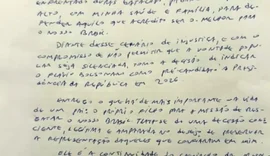 ALTO, MINHA SAÚDE E FAMÍLIA, PARA DE-
FENDER AQUILO QUE ACREDITO SER O MELHOR PARA
O NOSSO BRASIL.
DIANTE DESSE CENÁRIO DE INJUSTIÇA, E COM O
COMPROMISSO DE NÃO PERMITIR QUE A VONTADE POPU-
LAR SEJA SILENCIADA, TOMO A DECISÃO DE INDICAR
O FLÁVIO BOLSONARO COMO PRÉ-CANDIDATO À PRESI-
DÊNCIA DA REPÚBLICA EM 2026
ENTREGO O QUE HÁ DE MAIS IMPORTANTE NA VIDA
DE UM PAI: O PRÓPRIO FILHO PARA A MISSÃO DE RES-
GATAR O NOSSO BRASIL. TRATA-SE DE UMA DECISÃO CONS-
CIENTE, LEGÍTIMA E AMPARADA NO DESEJO DE PRESERVAR
A REPRESENTAÇÃO DAQUELES QUE CONFIARAM EM MIM
ELE É A CONTINUIDADE DO